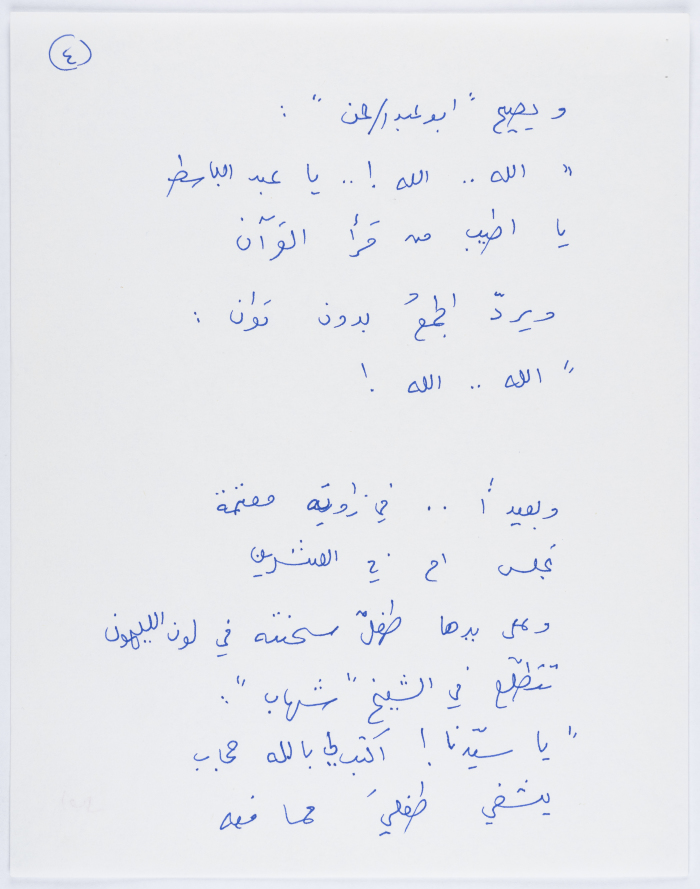 ٤
ويصيح "ابو عبد الرحمن" :
" الله .. الله ! .. يا عبد الباسط
يا اطيب من قرأ القرآن
ويردّ الجمعُ بدون توان :
" الله .. الله !
وبعيداً .. في زاويته معتمة
تجلس ام في العشرين
وعلى يدها طفلٌ سحنته في لون الليمون
تتطلّع في الشيخ "شهاب" :
" يا سيّدنا ! اكتب لي بالله حجاب
يشفي طفليَ مما فيه